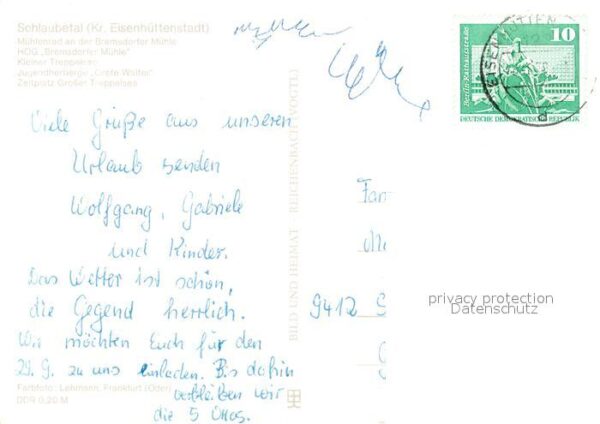 Schlaubetal (Kr. Eisenhüttenstadt)
Mühlenrad an der Bremsdorfer Mühle
HOG „Bremsdorfer Mühle"
Kleiner Treppelsee
Jugendherberge „Grete Walter"
Zeltplatz Großer Treppelsee
Viele Grüße aus unseren
Urlaub senden
Wolfgang, Gabriele
und Kinder.
Das Wetter ist schön,
die Gegend herrlich.
Wir möchten Euch für den
29. 9. zu uns einladen. Bis dahin
verbleiben wir
die 5
Farbfoto: Lehmann, Frankfurt (Oder)
DDR 0,20 M
BILD UND HEIMAT REICHENBACH (VOGTL)
10
Berlin, Rathausstraße
DEUTSCHE DEMOKRATISCHE REPUBLIK
Fam
9412 S
privacy protection
Datenschutz